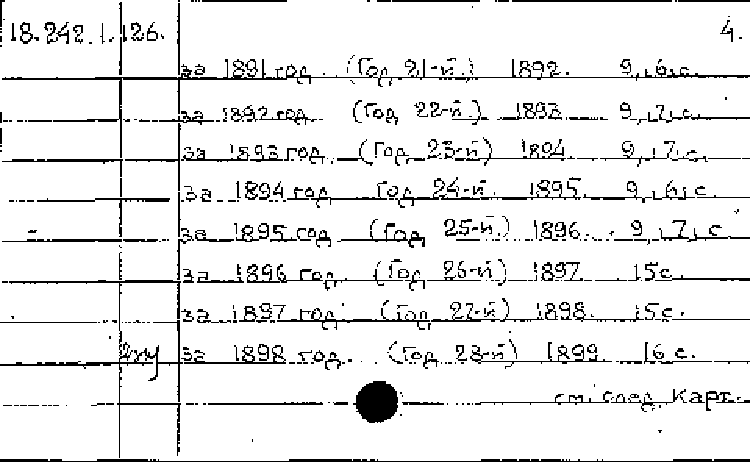 18.242.1.126. 4.
за 1891 год. (Год 21-й.) 1892. 9, 6, с.
за 1892 год (Год 22-й.) 1893 9, 7, с.
за 1893 год. (Год 23-й) 1894. 9, 7, с.
за 1894 год Год 24-й. 1895. 9, 6, с.
за 1895 год (Год 25-й.) 1896. 9, 7, с.
за 1896 год. (Год 26-й) 1897. 15 с.
за 1897 год (Год 27-й) 1898. 15 с.
за 1898 год. (Год 28-й) 1899. 16 с.
см. след. карт.